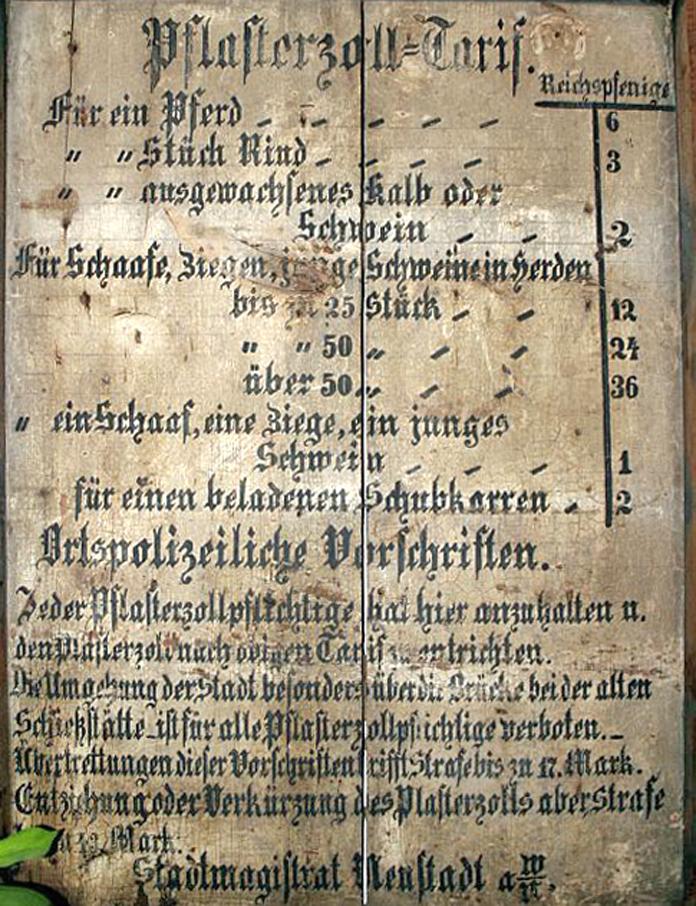 Pflasterzoll=Tarif.
Reichspfenige
Für ein Pferd 6
" " Stück Rind 3
" " ausgewachsenes Kalb oder
Schwein 2
Für Schaafe, Ziegen, junge Schweine in Herden
bis zu 25 Stück 12
" " 50 " 24
über 50 " 36
" ein Schaaf, eine Ziege, ein junges
Schwein 1
für einen beladenen Schubkarren 2
Ortspolizeiliche Vorschriften.
Jeder Pflasterzollpflichtige hat hier anzuhalten u.
den Plasterzoll nach obigen Tarif zu entrichten.
Die Umgehung der Stadt besonders über die Brücke bei der alten
Schießstätte ist für alle Pflasterzollpflichtige verboten.
Übertrettungen dieser Vorschriften trifft Strafe bis zu 17. Mark.
Entziehung oder Verkürzung des Plasterzolls aber Strafe
Mark.
Stadtmagistrat Neustadt a